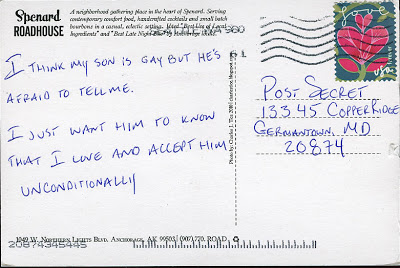 Spenard
ROADHOUSE
A neighborhood gathering place in the heart of Spenard. Serving
contemporary comfort food, handcrafted cocktails and small batch
bourbons in a casual, eclectic setting. Voted "Best Use of Local
Ingredients" and "Best Late Night Bite" by Anchorage
Love
USA
I THINK MY SON IS GAY BUT HE'S
AFRAID TO TELL ME.
I JUST WANT HIM TO KNOW
THAT I LOVE AND ACCEPT HIM
UNCONDITIONALLY
POST SECRET
13345 COPPER RIDGE
GERMANTOWN, MD
20874
1049 W. Northern Lights Blvd. Anchorage, AK 99503 (907) 770. ROAD
20874345445